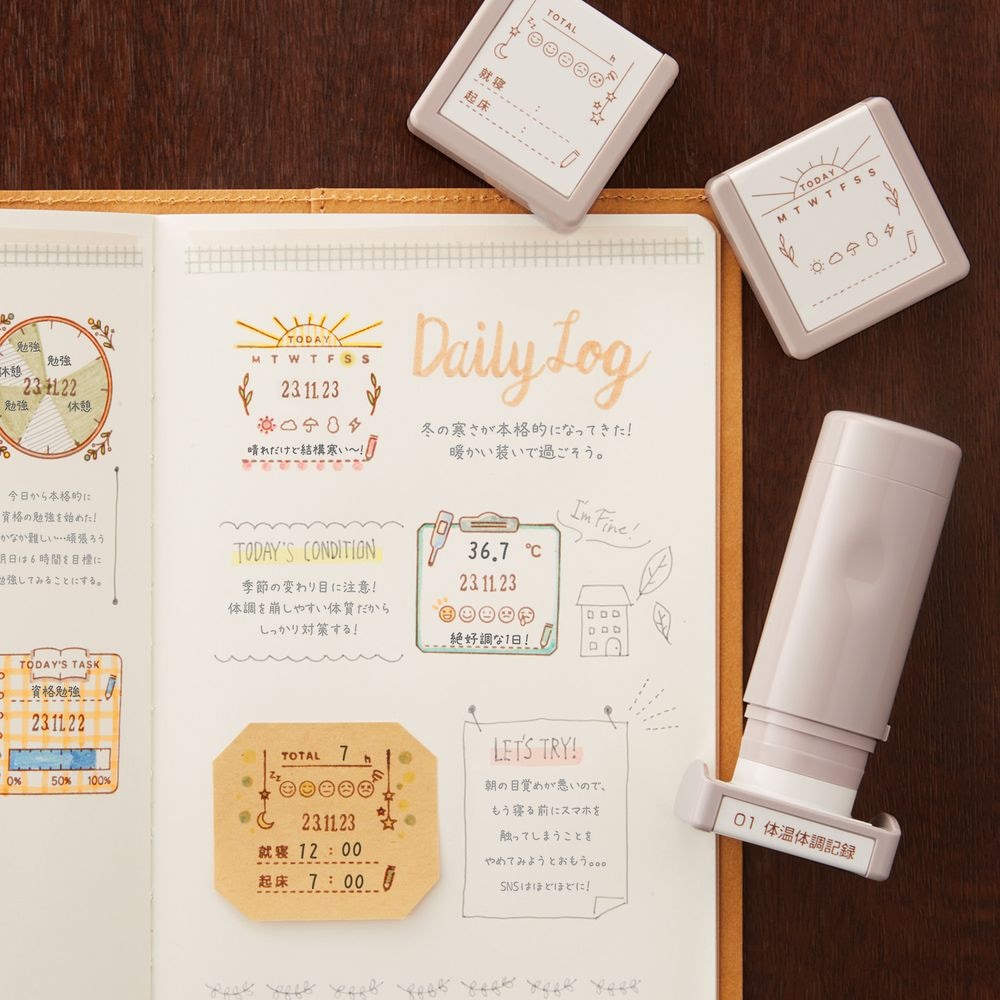 TOTAL
h
就寝 :
起床 :
TODAY
M T W T F S S
勉強
勉強
休憩
23.11.22
勉強
休憩
今日から本格的に
資格の勉強を始めた!
かなか難しい…頑張ろう
明日は6時間を目標に
勉強してみることにする。
TODAY'S TASK
資格勉強
23.11.22
0% 50% 100%
TODAY
M T W T F S S
23.11.23
晴れだけど結構寒い〜!
Daily Log
冬の寒さが本格的になってきた!
暖かい装いで過ごそう。
TODAY'S CONDITION
季節の変わり目に注意!
体調を崩しやすい体質だから
しっかり対策する!
36.7 ℃
23.11.23
絶好調な1日!
I'm Fine!
TOTAL 7 h
zz
23.11.23
就寝 12 : 00
起床 7 : 00
LET'S TRY!
朝の目覚めが悪いので、
もう寝る前にスマホを
触ってしまうことを
やめてみようとおもう。。。
SNSはほどほどに!
01 体温体調記録